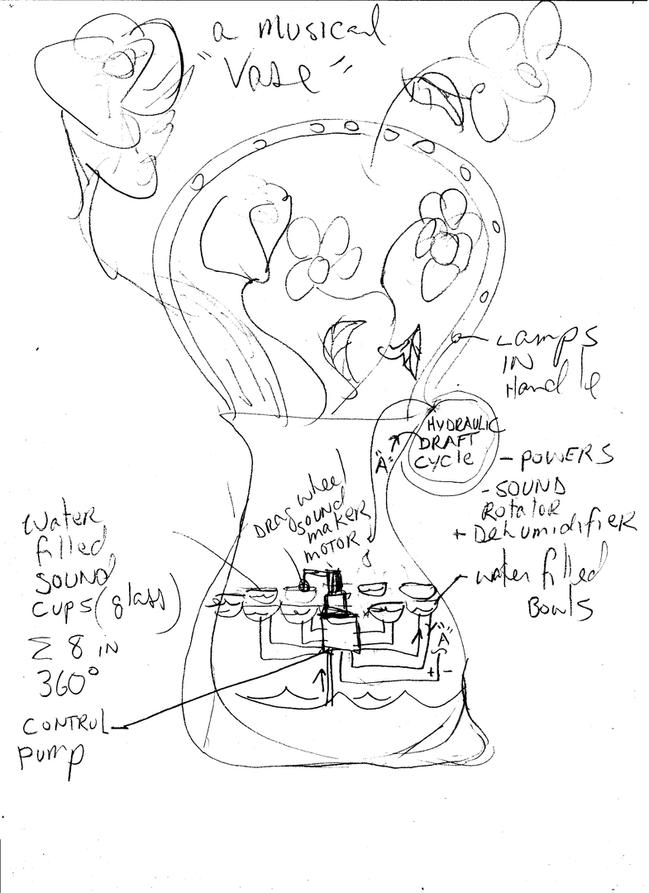 a musical
"Vase"
Lamps
IN
Handle
HYDRAULIC
DRAFT
CYCle
"A"
- POWERS
- SOUND
Rotator
+ Dehumidifier
DRAG wheel
sound
maker
MOTOR
water
filled
SOUND
CUPS (glass)
Σ 8 IN
360°
water filled
BOWLS
"A"
+ -
CONTROL
pump